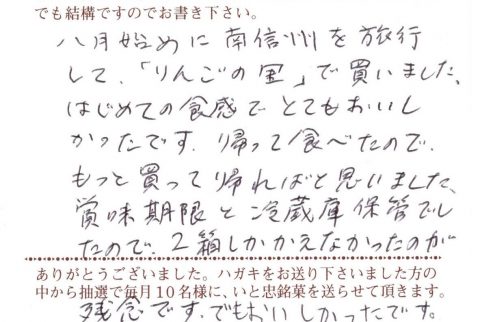 でも結構ですのでお書き下さい。
八月始めに南信州を旅行
して、「りんごの里」で買いました、
はじめての食感でとてもおいし
かったです、帰って食べたので、
もっと買って帰ればと思いました、
賞味期限と冷蔵庫保管でし
たので、2箱しかかえなかったのが
ありがとうございました。ハガキをお送り下さいました方の
中から抽選で毎月10名様に、いと忠銘菓を送らせて頂きます。
残念です、でもおいしかったです。